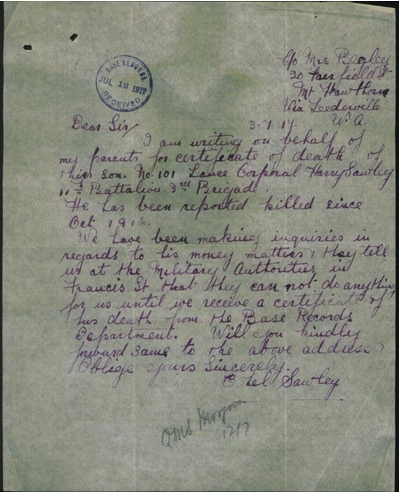 c/o Mrs Begley
20 Fairfield St
Mt Hawthorn
Via Leederville
W. A.
3.7.17.
BASE RECORDS
JUL 12 1917
RECEIVED
Dear Sir/
I am writing on behalf of
my parents for certificate of death of
their son. No. 101 Lance Corporal Harry Sawley
11th Battalion. 3rd Brigade.
He has been reported killed since
Oct 1915.
We have been making inquiries in
regards to his money matters, they tell
us at the Military Authorities in
Francis St that they can not do anything
for us until we receive a certificate of
his death from the Base Records
Department. Will you kindly
forward same to the above address
Oblige yours Sincerely.
Sawley
QMS
12/7